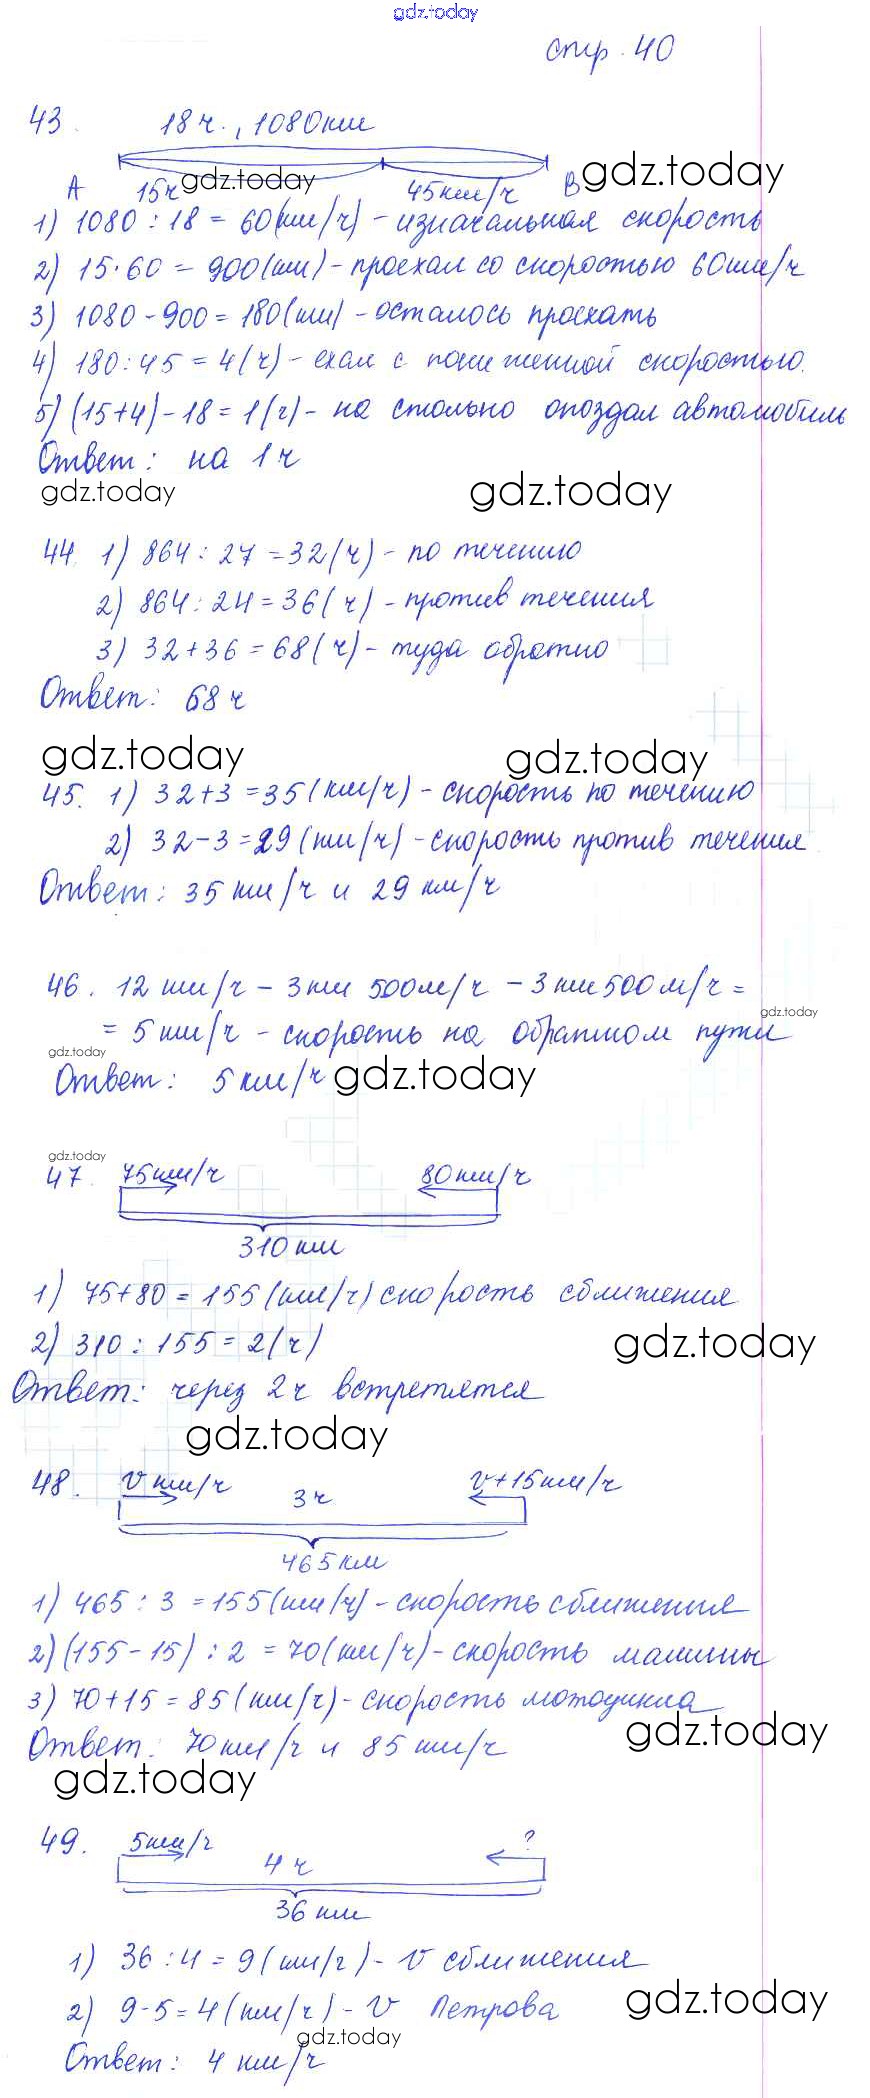 gdz.today
стр. 40
43. 18 ч., 1080 км
gdz.today
A 15ч gdz.today 45км/ч B
1) 1080 : 18 = 60(км/ч) - изначальная скорость
2) 15·60 = 900(км) - проехал со скоростью 60км/ч
3) 1080-900=180(км) - осталось проехать
4) 180:45=4(ч) - ехал с пониженной скоростью.
5) (15+4)-18=1(ч) - на столько опоздал автомобиль
Ответ: на 1ч
gdz.today gdz.today
44. 1) 864:27=32(ч) - по течению
2) 864:24=36(ч) - против течения
3) 32+36=68(ч) - туда обратно
Ответ: 68ч
gdz.today gdz.today
45. 1) 32+3=35(км/ч) - скорость по течению
2) 32-3=29(км/ч) - скорость против течения
Ответ: 35км/ч и 29км/ч
46. 12км/ч - 3км 500м/ч - 3км500м/ч =
gdz.today
= 5км/ч - скорость на обратном пути
gdz.today
Ответ: 5км/ч gdz.today
gdz.today
47. 75км/ч 80км/ч
310км
1) 75+80=155(км/ч) скорость сближения
2) 310:155=2(ч)
gdz.today
Ответ: через 2ч встретятся
gdz.today
48. v км/ч 3ч v+15км/ч
465км
1) 465:3=155(км/ч) - скорость сближения
2) (155-15):2=70(км/ч) - скорость машины
3) 70+15=85(км/ч) - скорость мотоцикла
gdz.today
Ответ: 70км/ч и 85км/ч
gdz.today
49. 5км/ч 4ч ?
36км
1) 36:4=9(км/ч) - v сближения
2) 9-5=4(км/ч) - v Петрова
gdz.today
gdz.today
Ответ: 4км/ч